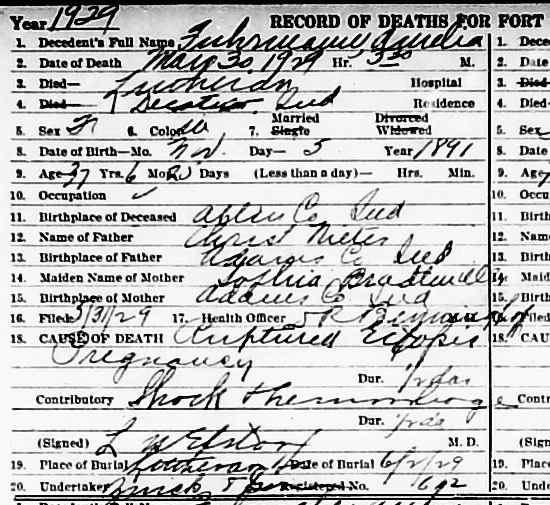 Year 1929 RECORD OF DEATHS FOR FORT
1. Decedent's Full Name Fuhrmann, Amelia 1. Dece
2. Date of Death May 30, 1929 Hr. 5:30 M. 2. Date
3. Died— Lutheran Hospital 3. Died—
4. Died— Decatur Ind Residence 4. Died—
5. Sex F 6. Color W 7. Married Single Divorced Widowed 5. Sex
8. Date of Birth—Mo. Nov. Day— 5 Year 1891 8. Date
9. Age 37 Yrs. 6 Mo. 20 Days (Less than a day)— Hrs. Min. 9. Age
10. Occupation ✓ 10. Occu
11. Birthplace of Deceased Allen Co Ind 11. Birth
12. Name of Father Christ 12. Name
13. Birthplace of Father Adams Co Ind 13. Birth
14. Maiden Name of Mother Sophia 14. Maid
15. Birthplace of Mother Adams Co Ind 15. Birth
16. Filed 5/31/29 17. Health Officer 16. Filed
18. CAUSE OF DEATH Ruptured Ectopic 18. CAUS
Pregnancy
Dur.
Contributory Shock & hemorrhage Contri
Dur.
(Signed) M. D. (Signe
19. Place of Burial Lutheran Date of Burial 6/2/29 19. Place
20. Undertaker Registered No. 692 20. Unde